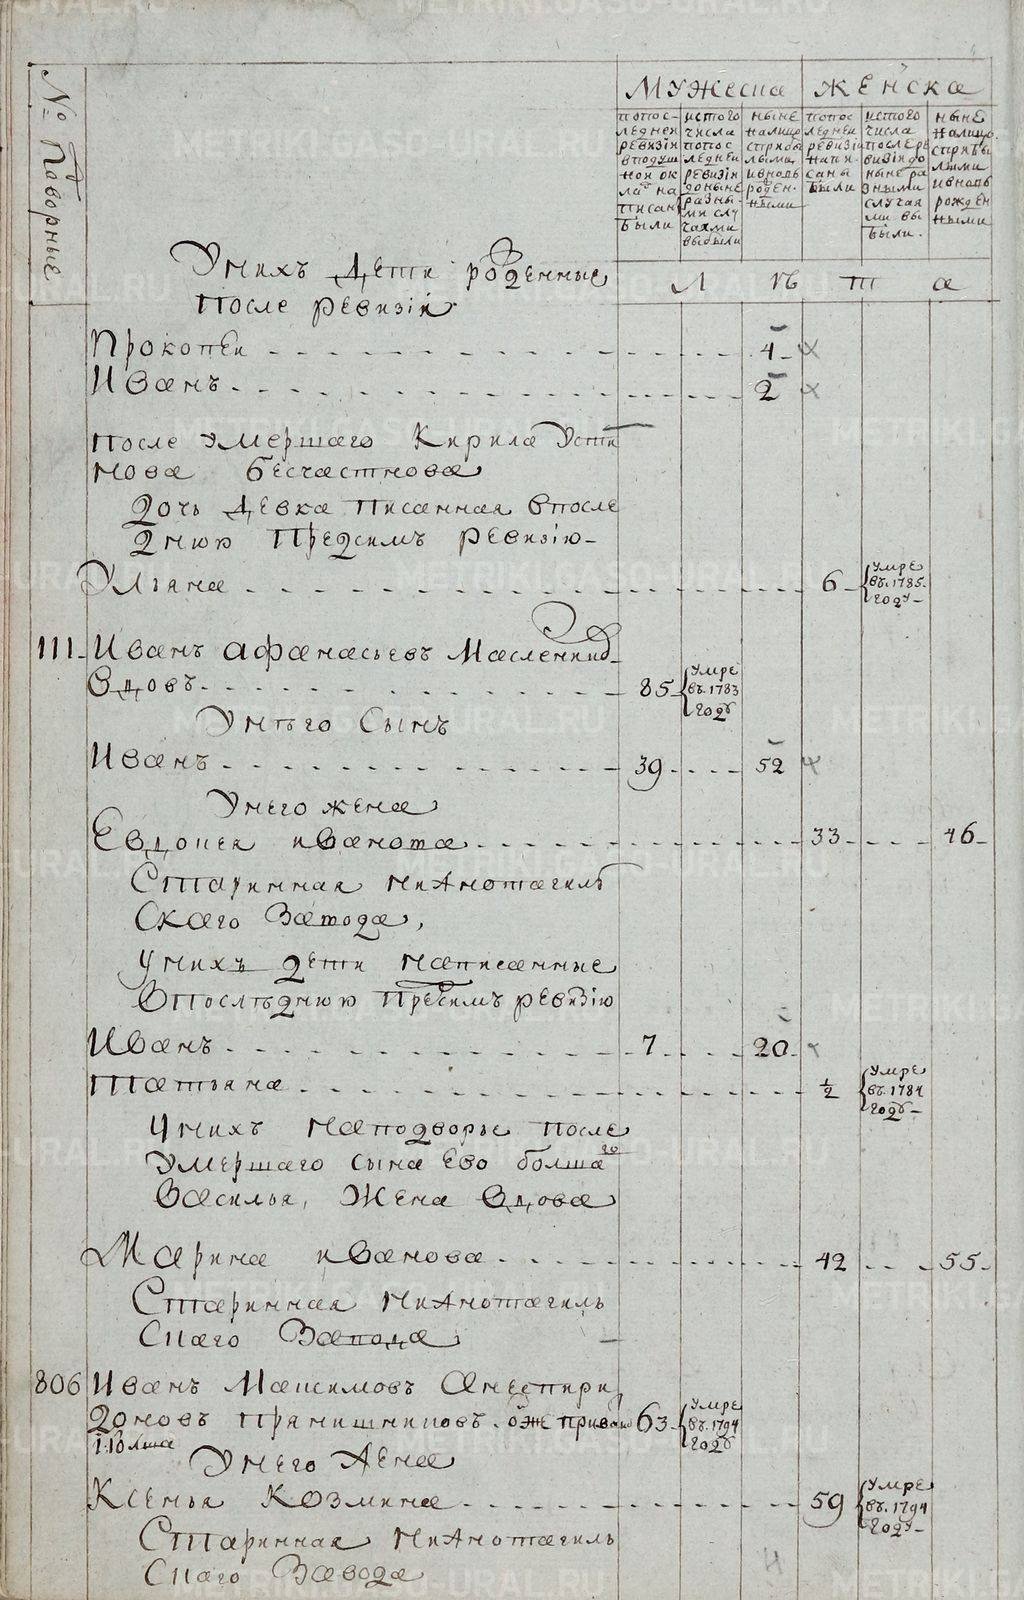 № Подворные
МУЖЕСКА
ЖЕНСКА
попос-
ледней
ревизіи
вподуш
ном ок
ладе на
писан
были
истого
числа
попос
ледней
ревизіи
доныне
разны-
ми слу
чаями
выбыли
ныне
налицо
сприбы
лыми
ивновь
рожден-
ными
попос
ледней
ревизіи
напи-
саны
были
истого
числа
послере
визіидо
ныне ра
зными
случая
ми вы
были.
ныне
налицо
сприбы
лыми
ивновь
рожден
ными
Унихъ дети рожденные
после ревизіи
Л ѣ т а
Прокопеи 4
Иванъ 2
После умершаго Кирила Усти
нова бесчастнова
дочь девка писанная впосле
днюю предсимъ ревизію
Ульяна 6 умре
въ. 1785.
году
111 Иванъ афанасьевъ Масленник
вдовъ 85 умре
въ. 1783
году
Унѣго сынъ
Иванъ 39 52
Унего жена
Евдокея иванова 33 46
Старинная нижнотагиль
скаго завода,
унихъ дети написанные
впослѣднюю предсимъ ревизію
Иванъ 7 20
Татьяна ½ умре
въ. 1784
году
унихъ наподворье после
умершаго сына ево болша
го
василья, жена вдова
Марина иванова 42 55
Старинная нижнотагиль
скаго завода
806 Иванъ Максимовъ
доновъ прянишниковъ. 63 умре
въ. 1794
году
Унего жена
Ксенья козмина 59 умре
въ. 1794
году
Старинная нижнотагиль
скаго завода